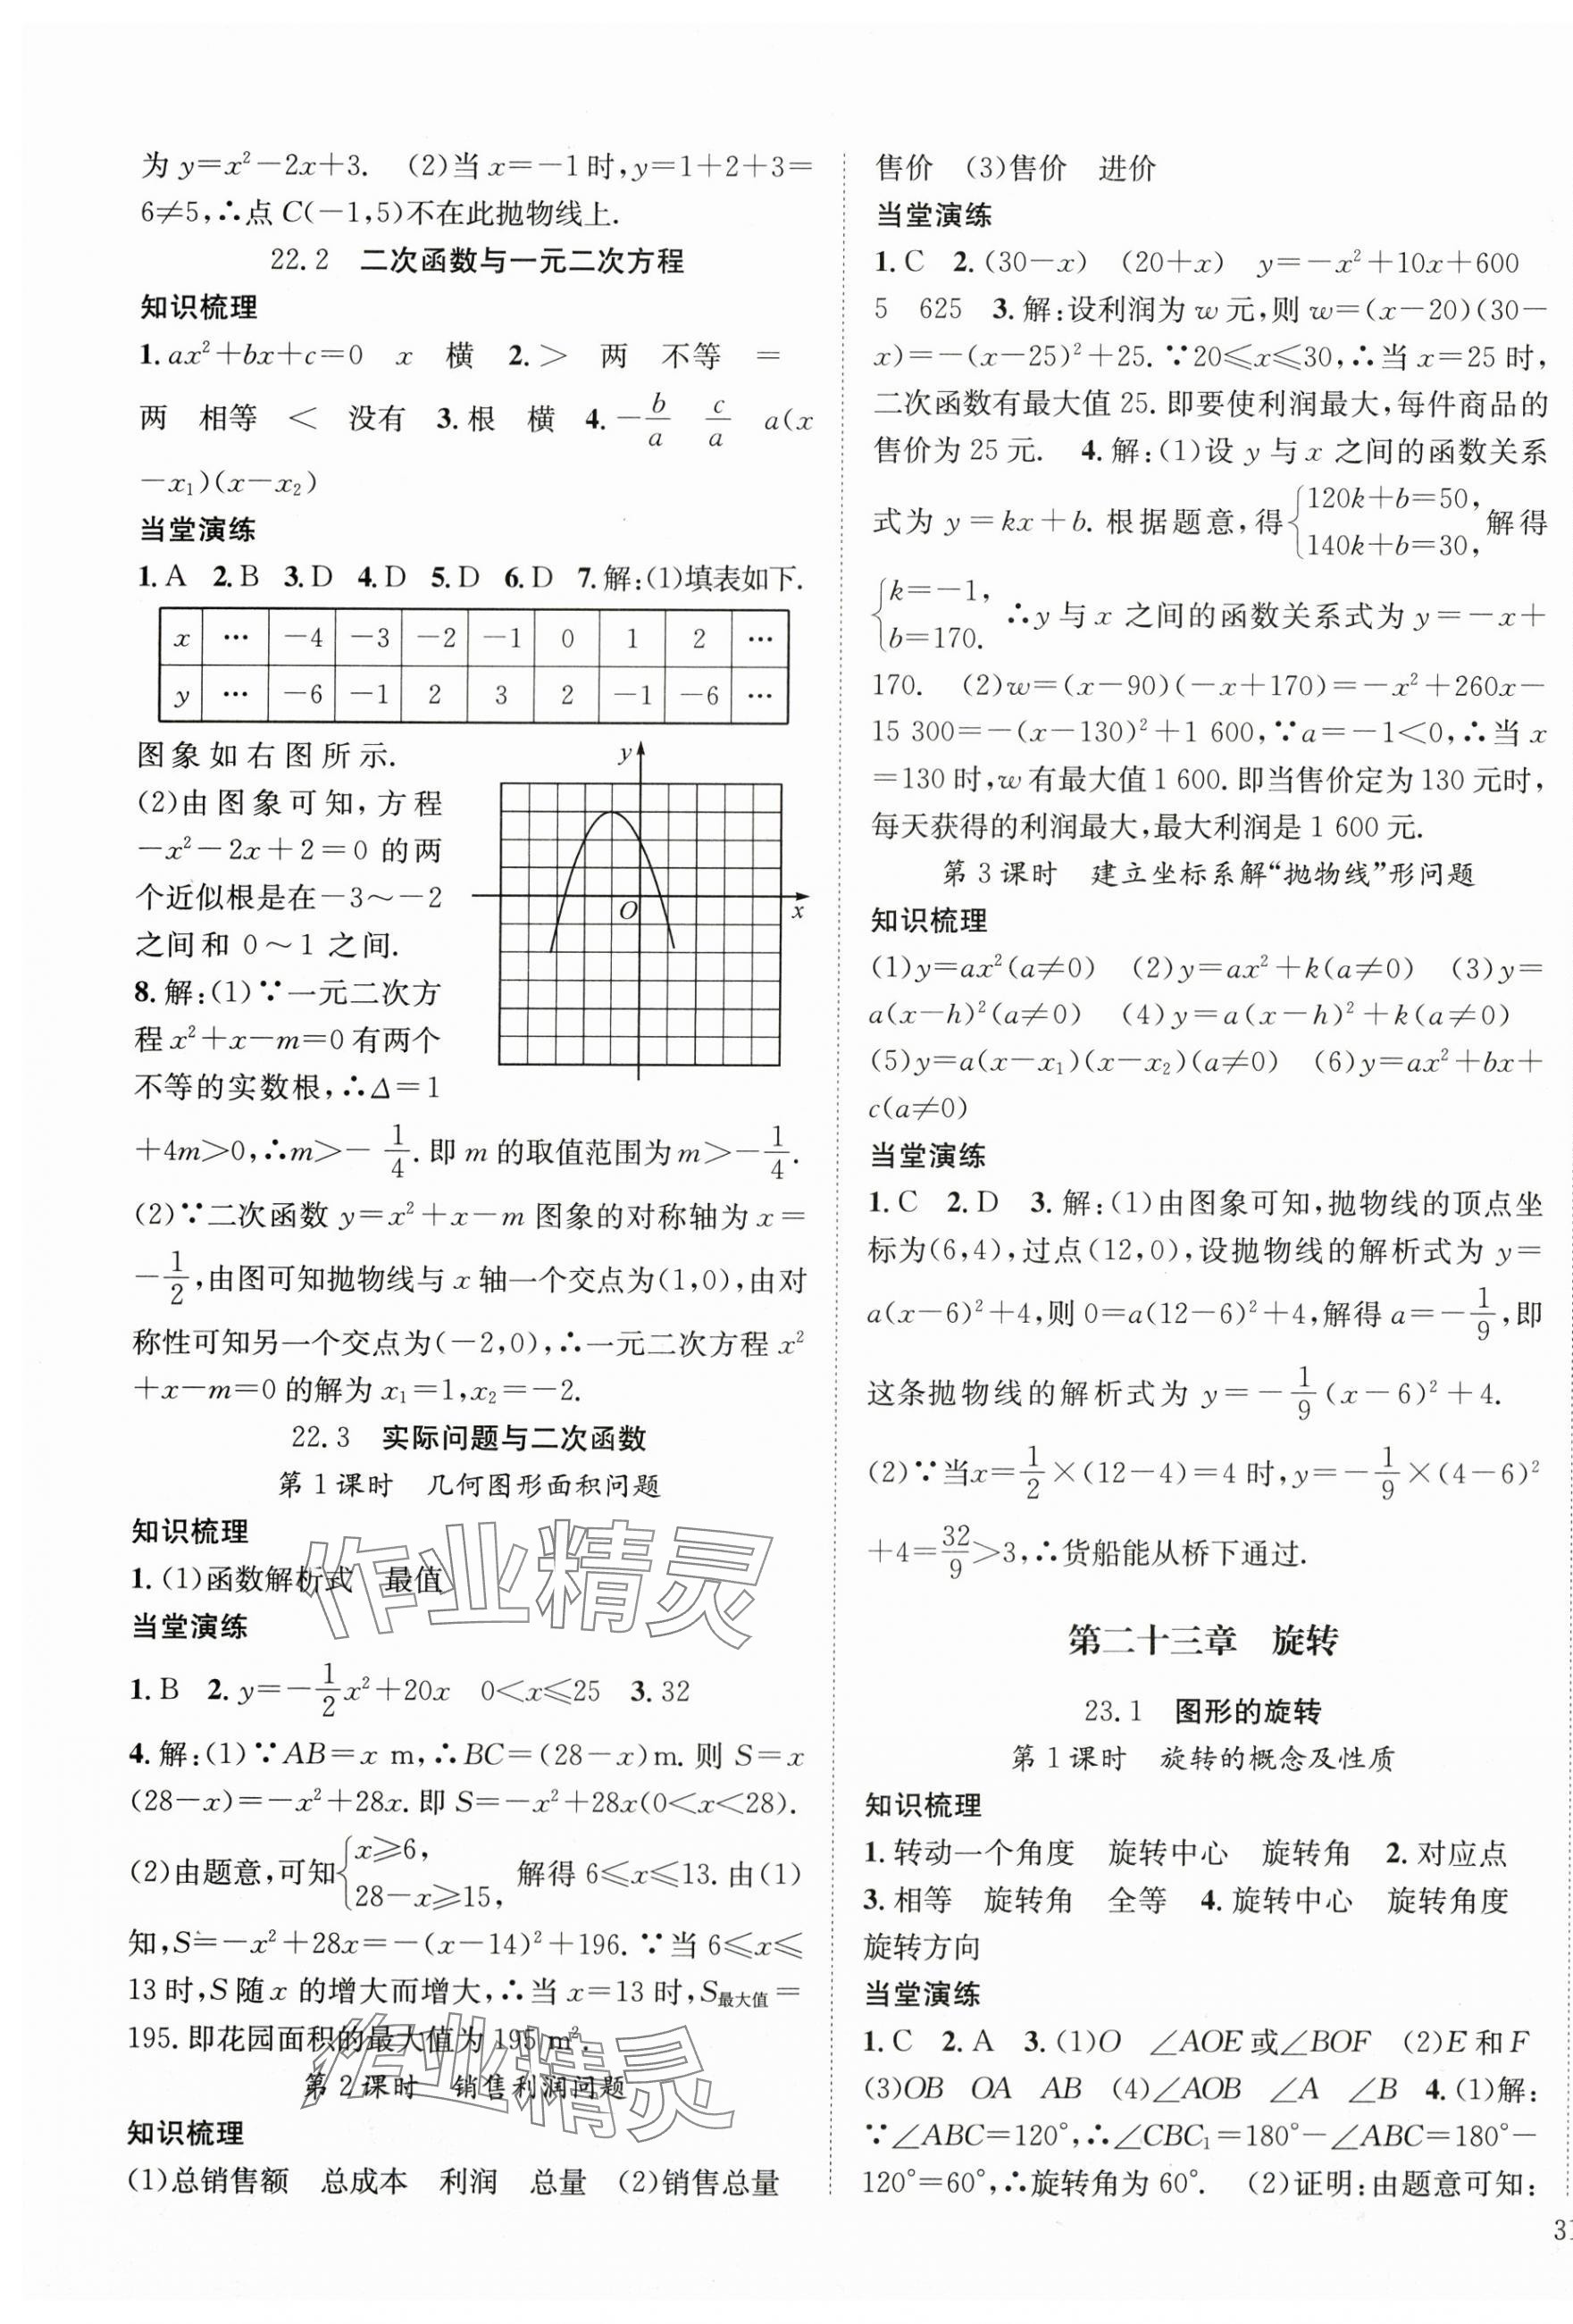 为 y=x²-2x+3. (2)当 x=-1时,y=1+2+3=
6≠5,∴点 C(-1,5)不在此抛物线上.
22.2 二次函数与一元二次方程
知识梳理
1. ax²+bx+c=0 x 横 2. > 两 不等 =
两 相等 < 没有 3. 根 横 4. -b/a c/a a(x
-x₁)(x-x₂)
当堂演练
1. A 2. B 3. D 4. D 5. D 6. D 7. 解:(1)填表如下.
x … -4 -3 -2 -1 0 1 2 …
y … -6 -1 2 3 2 -1 -6 …
图象如右图所示.
(2)由图象可知,方程
-x²-2x+2=0 的两
个近似根是在-3~-2
之间和 0~1 之间.
y
O
x
8. 解:(1)∵一元二次方
程 x²+x-m=0 有两个
不等的实数根,∴Δ=1
+4m>0,∴m>-1/4. 即 m 的取值范围为 m>-1/4.
(2)∵二次函数 y=x²+x-m 图象的对称轴为 x=
-1/2,由图可知抛物线与 x 轴一个交点为(1,0),由对
称性可知另一个交点为(-2,0),∴一元二次方程 x²
+x-m=0 的解为 x₁=1,x₂=-2.
22.3 实际问题与二次函数
第1课时 几何图形面积问题
知识梳理
1. (1)函数解析式 最值
当堂演练
1. B 2. y=-1/2x²+20x 0<x≤25 3. 32
4. 解:(1)∵AB=x m,∴BC=(28-x)m. 则 S=x
(28-x)=-x²+28x. 即 S=-x²+28x(0<x<28).
(2)由题意,可知{x≥6, 28-x≥15, 解得 6≤x≤13. 由(1)
知,S=-x²+28x=-(x-14)²+196. ∵当 6≤x≤
13时,S随x 的增大而增大,∴当 x=13时,S最大值=
195. 即花园面积的最大值为 195 m².
第2课时 销售利润问题
知识梳理
(1)总销售额 总成本 利润 总量 (2)销售总量
售价 (3)售价 进价
当堂演练
1. C 2. (30-x) (20+x) y=-x²+10x+600
5 625 3. 解:设利润为 w 元,则 w=(x-20)(30-
x)=-(x-25)²+25. ∵20≤x≤30,∴当 x=25 时,
二次函数有最大值 25. 即要使利润最大,每件商品的
售价为 25 元. 4. 解:(1)设 y 与 x 之间的函数关系
式为 y=kx+b. 根据题意,得{120k+b=50, 140k+b=30, 解得
{k=-1, b=170. ∴y 与 x 之间的函数关系式为 y=-x+
170. (2)w=(x-90)(-x+170)=-x²+260x-
15 300=-(x-130)²+1 600,∵a=-1<0,∴当 x
=130 时,w 有最大值 1 600. 即当售价定为 130 元时,
每天获得的利润最大,最大利润是 1 600 元.
第3课时 建立坐标系解“抛物线”形问题
知识梳理
(1)y=ax²(a≠0) (2)y=ax²+k(a≠0) (3)y=
a(x-h)²(a≠0) (4)y=a(x-h)²+k(a≠0)
(5)y=a(x-x₁)(x-x₂)(a≠0) (6)y=ax²+bx+
c(a≠0)
当堂演练
1. C 2. D 3. 解:(1)由图象可知,抛物线的顶点坐
标为(6,4),过点(12,0),设抛物线的解析式为 y=
a(x-6)²+4,则 0=a(12-6)²+4,解得 a=-1/9,即
这条抛物线的解析式为 y=-1/9(x-6)²+4.
(2)∵当x=1/2×(12-4)=4 时,y=-1/9×(4-6)²
+4=32/9>3,∴货船能从桥下通过.
第二十三章 旋转
23.1 图形的旋转
第1课时 旋转的概念及性质
知识梳理
1. 转动一个角度 旋转中心 旋转角 2. 对应点
3. 相等 旋转角 全等 4. 旋转中心 旋转角度
旋转方向
当堂演练
1. C 2. A 3. (1)O ∠AOE或∠BOF (2)E 和 F
(3)OB OA AB (4)∠AOB ∠A ∠B 4. (1)解:
∵∠ABC=120°,∴∠CBC₁=180°-∠ABC=180°-
120°=60°,∴旋转角为 60°. (2)证明:由题意可知:
31
作业精灵
作业精灵